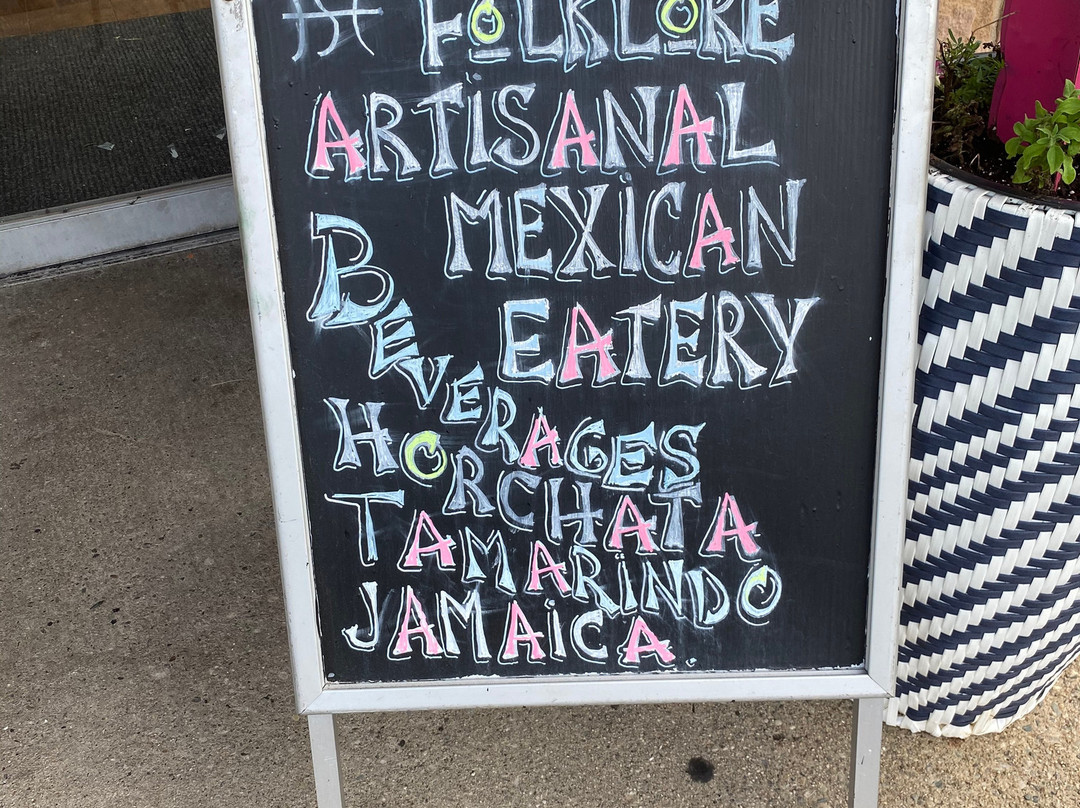 FOLKLORE
ARTiSANAL
MEXiCAN
EATERY
BEVERAGES
HORCHATA
TAMARiNDO
JAMAiCA.